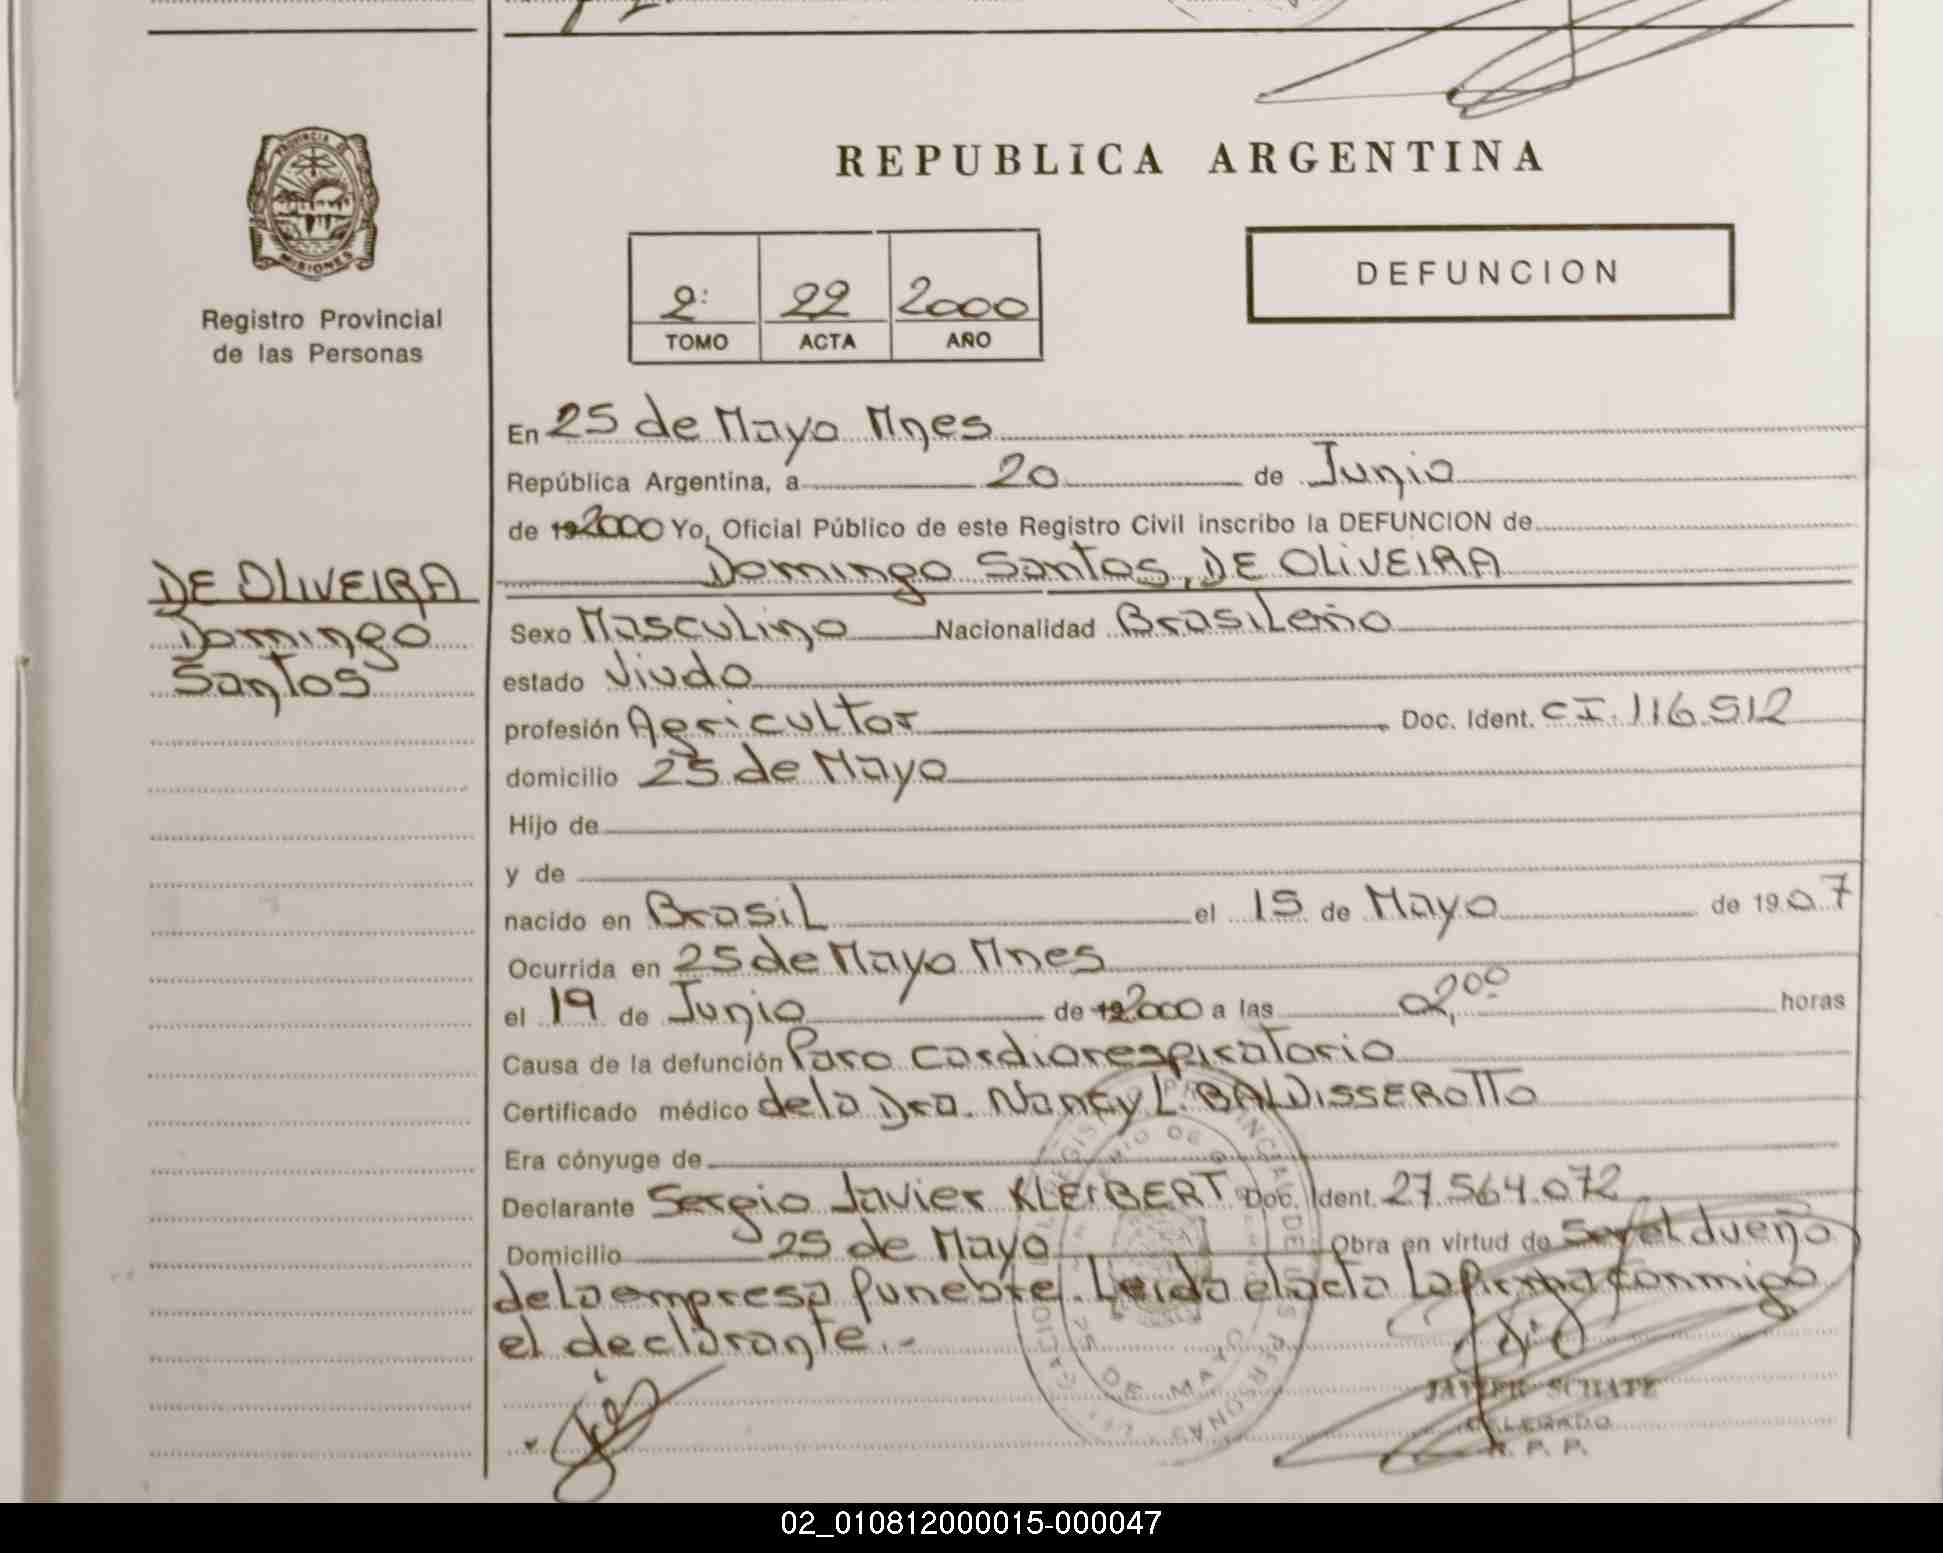 PROVINCIA D
MISIONES
Registro Provincial
de las Personas
REPUBLICA ARGENTINA
2: 22 2000
TOMO ACTA AÑO
DEFUNCION
En 25 de Mayo Mnes
República Argentina, a 20 de Junio
de 192000 Yo, Oficial Público de este Registro Civil inscribo la DEFUNCION de
Domingo Santos, DE OLIVEIRA
DE OLIVEIRA
Domingo
Santos
Sexo Masculino Nacionalidad Brasileño
estado Viudo
profesión Agricultor Doc. Ident. CI. 116.512
domicilio 25 de Mayo
Hijo de
y de
nacido en Brasil el 15 de Mayo de 1907
Ocurrida en 25 de Mayo Mnes
el 19 de Junio de 192000 a las 02,00 horas
Causa de la defunción Paro cardiorespiratorio
Certificado médico de la Dra. Nancy L. BALDISSEROTTO
Era cónyuge de
Declarante Sergio Javier KLEIBERT Doc. Ident. 27.564.072
Domicilio 25 de Mayo Obra en virtud de Ser el dueño
de la empresa funebre. Leida el acta la firma conmigo
el declarante.-
25 DE MAYO
JAVIER SCHATZ
DELEGADO
R. P. P.
02_010812000015-000047